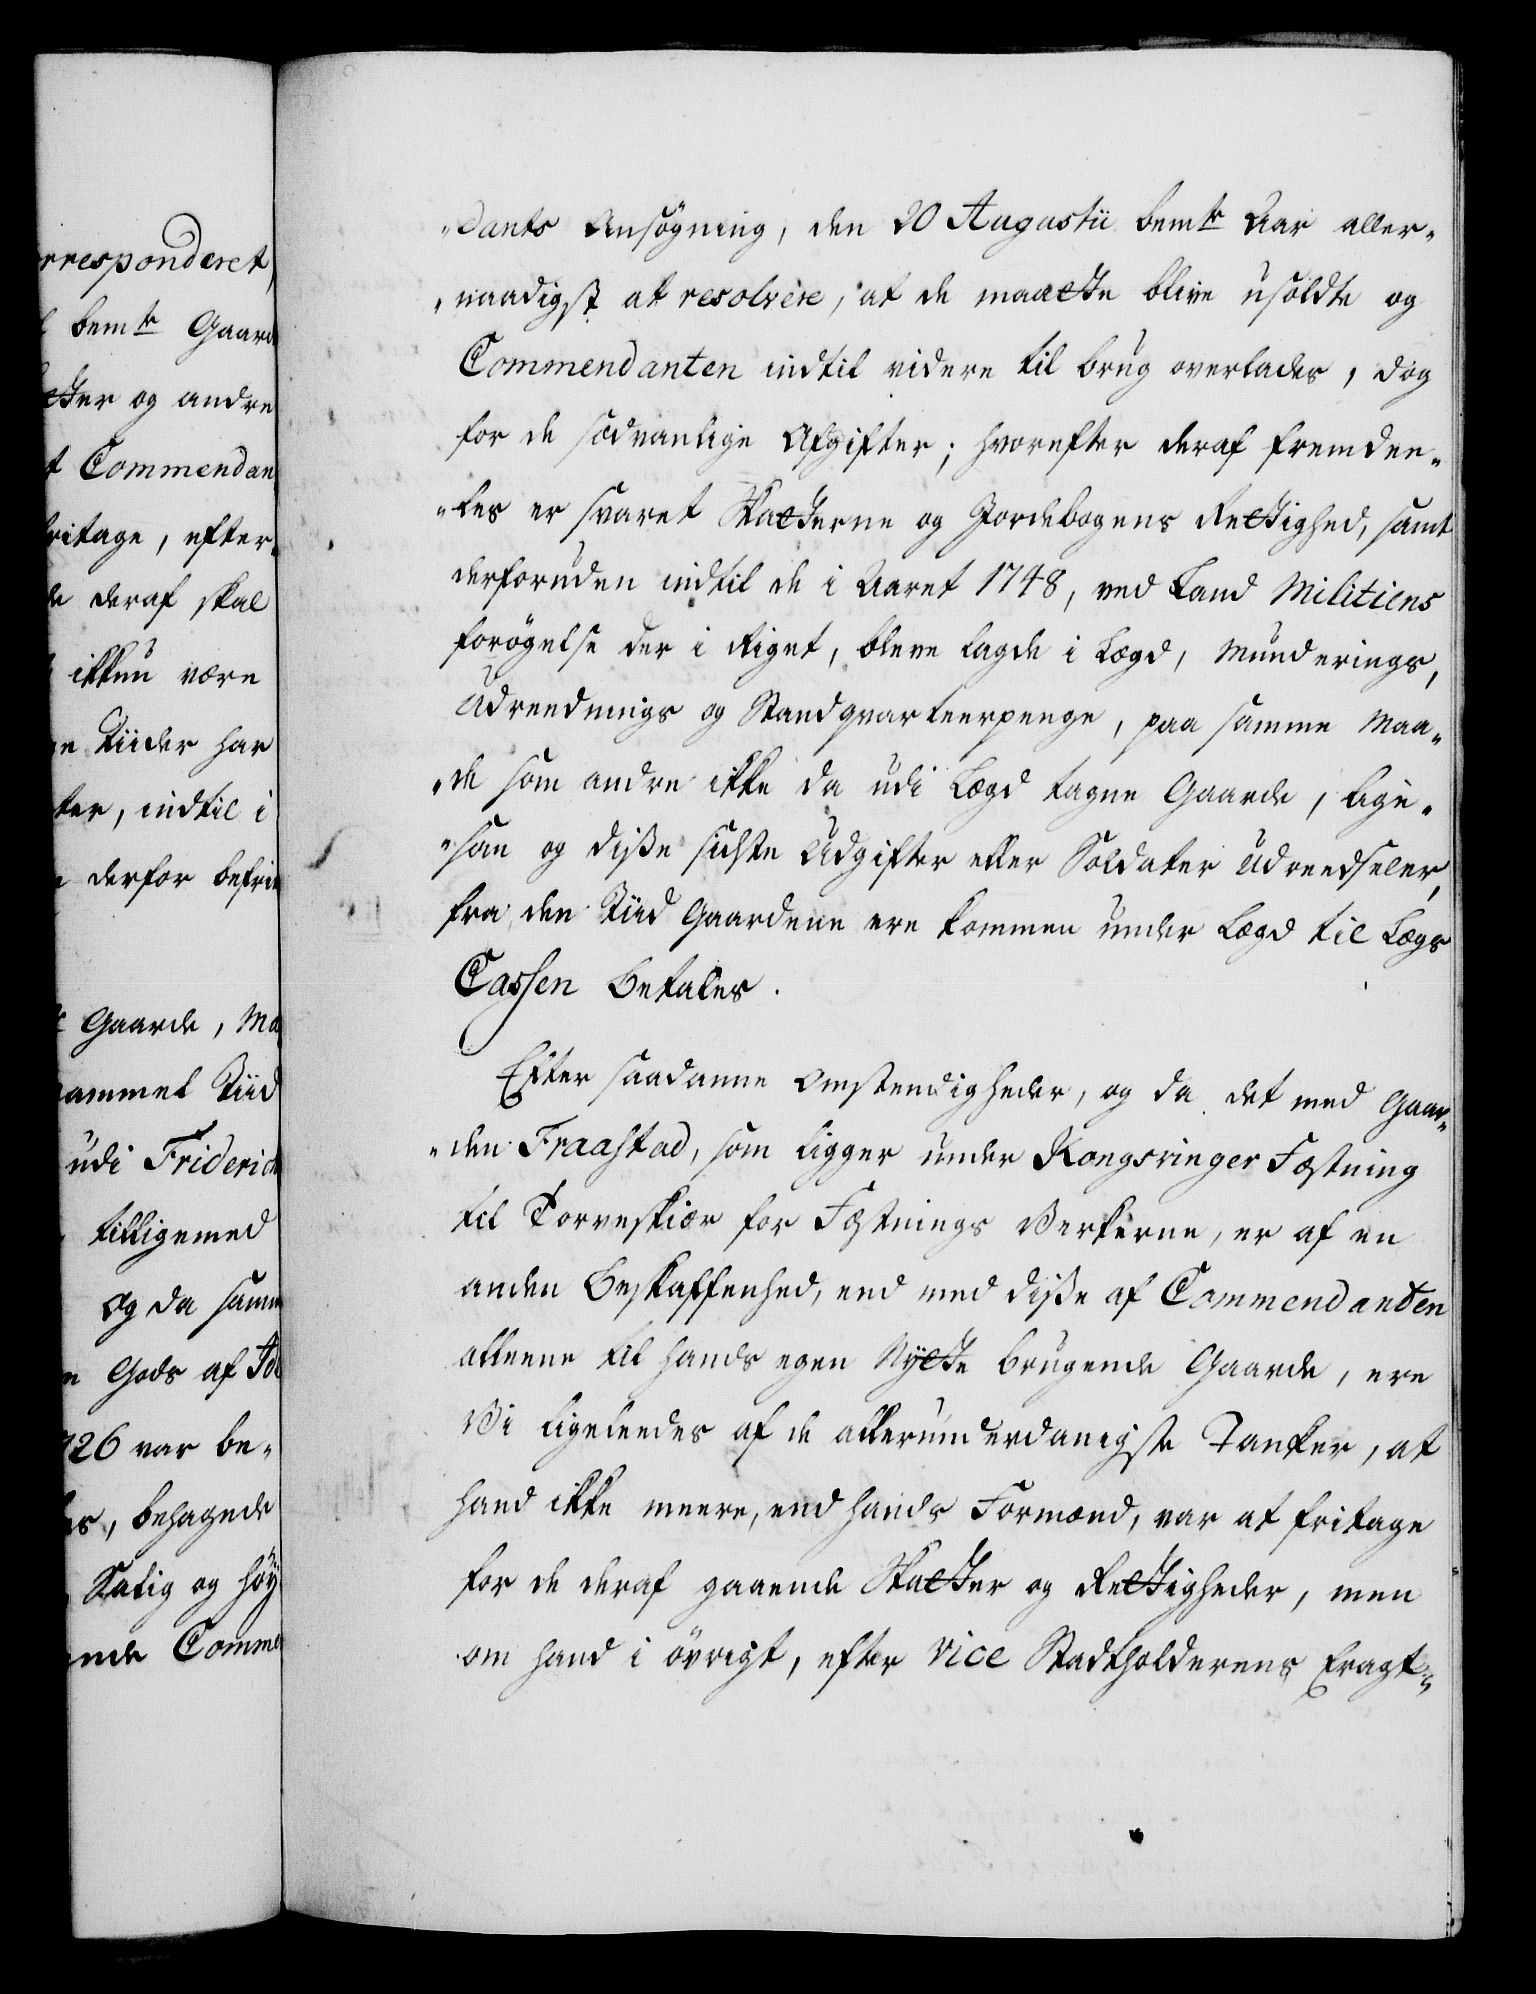 rresponderet,
bemte Gaard
cter og andre
t Commendan
fritage, efter-
de deraf skal
ikkun være
ge Tiider har
ter, indtil i
derfor befrie
Gaarde, Ma
gammel Tiid
udi Friderich
tilligemed
Og da samme
Gods af
726 var be-
es, behagede
Salig og høy
ende Comme
"dants Ansøgning, den 20 Augustii bemte Aar aller-
"naadigst at resolvere, at de maatte blive usoldte og
Commendanten indtil videre til brug overlades, dog
for de sædvanlige Afgifter; hvorefter deraf fremdee-
"les er svaret Skatterne og Jordebogens Rettighed, samt
derforuden indtil de i Aaret 1748, ved Land Militiens
forøgelse der i Riget, bleve lagde i Lægd, Munderings,
Udreednings og Standqvarteerpenge, paa samme Maa-
"de som andre ikke da udi Lægd tagne Gaarde, lige-
"saa og disse sidste Udgifter eller Soldater Udreedseler,
fra den Tiid Gaardene ere kommen under Lægd til Lægs
Cassen betales.
Efter saadanne Omstendigheder, og da det med Gaar-
"den Fraastad, som ligger under Kongsvinger Fæstning
til Torveskiær for Fæstnings Verkerne, er af en
anden Beskaffenhed, end med disse af Commendanten
alleene til hands egen Nytte brugende Gaarde, ere
Vi ligeleedes af de allerunderdanigste Tanker, at
hand ikke meere, end hands Formænd, var at fritage
for de deraf gaaende Skatter og Rettigheder, men
om hand i øvrigt, efter Vice Stadtholderens Eragt-